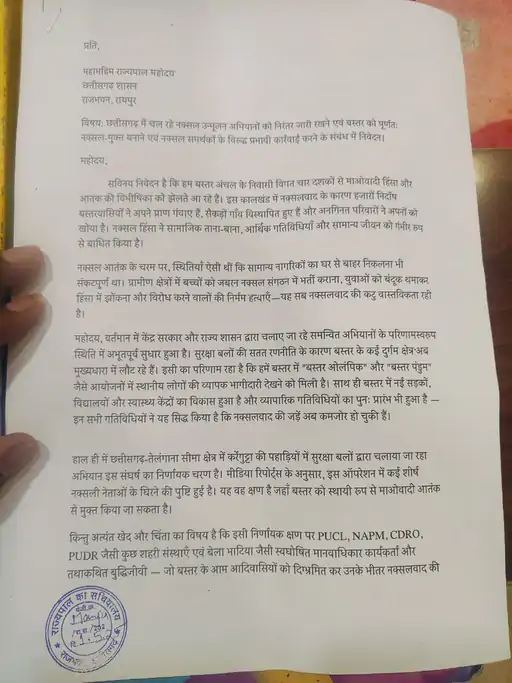 प्रति,
महामहिम राज्यपाल महोदय
छत्तीसगढ़ शासन
राजभवन, रायपुर
विषय: छत्तीसगढ़ में चल रहे नक्सल उन्मूलन अभियानों को निरंतर जारी रखने एवं बस्तर को पूर्णतः
नक्सल-मुक्त बनाने एवं नक्सल समर्थकों के विरुद्ध प्रभावी कार्रवाई करने के संबंध में निवेदन।
महोदय,
सविनय निवेदन है कि हम बस्तर अंचल के निवासी विगत चार दशकों से माओवादी हिंसा और
आतंक की विभीषिका को झेलते आ रहे हैं। इस कालखंड में नक्सलवाद के कारण हजारों निर्दोष
बस्तरवासियों ने अपने प्राण गंवाए हैं, सैकड़ों गाँव विस्थापित हुए हैं और अनगिनत परिवारों ने अपनों को
खोया है। नक्सल हिंसा ने सामाजिक ताना-बाना, आर्थिक गतिविधियाँ और सामान्य जीवन को गंभीर रूप
से बाधित किया है।
नक्सल आतंक के चरम पर, स्थितियाँ ऐसी थीं कि सामान्य नागरिकों का घर से बाहर निकलना भी
संकटपूर्ण था। ग्रामीण क्षेत्रों में बच्चों को जबरन नक्सल संगठन में भर्ती कराना, युवाओं को बंदूक थमाकर
हिंसा में झोंकना और विरोध करने वालों की निर्मम हत्याएँ—यह सब नक्सलवाद की कटु वास्तविकता रही
है।
महोदय, वर्तमान में केंद्र सरकार और राज्य शासन द्वारा चलाए जा रहे समन्वित अभियानों के परिणामस्वरूप
स्थिति में अभूतपूर्व सुधार हुआ है। सुरक्षा बलों की सतत रणनीति के कारण बस्तर के कई दुर्गम क्षेत्र अब
मुख्यधारा में लौट रहे हैं। इसी का परिणाम रहा है कि हमें बस्तर में "बस्तर ओलंपिक" और "बस्तर पंडुम"
जैसे आयोजनों में स्थानीय लोगों की व्यापक भागीदारी देखने को मिली है। साथ ही बस्तर में नई सड़कों,
विद्यालयों और स्वास्थ्य केंद्रों का विकास हुआ है और व्यापारिक गतिविधियों का पुनः प्रारंभ भी हुआ है —
इन सभी गतिविधियों ने यह सिद्ध किया है कि नक्सलवाद की जड़ें अब कमजोर हो चुकी हैं।
हाल ही में छत्तीसगढ़-तेलंगाना सीमा क्षेत्र में कर्रेगुट्टा की पहाड़ियों में सुरक्षा बलों द्वारा चलाया जा रहा
अभियान इस संघर्ष का निर्णायक चरण है। मीडिया रिपोर्ट्स के अनुसार, इस ऑपरेशन में कई शीर्ष
नक्सली नेताओं के घिरने की पुष्टि हुई है। यह वह क्षण है जहाँ बस्तर को स्थायी रूप से माओवादी आतंक
से मुक्त किया जा सकता है।
किन्तु अत्यंत खेद और चिंता का विषय है कि इसी निर्णायक क्षण पर PUCL, NAPM, CDRO,
PUDR जैसी कुछ शहरी संस्थाएँ एवं बेला भाटिया जैसी स्वघोषित मानवाधिकार कार्यकर्ता और
तथाकथित बुद्धिजीवी — जो बस्तर के आम आदिवासियों को दिग्भ्रमित कर उनके भीतर नक्सलवाद की
राज्यपाल का सचिवालय